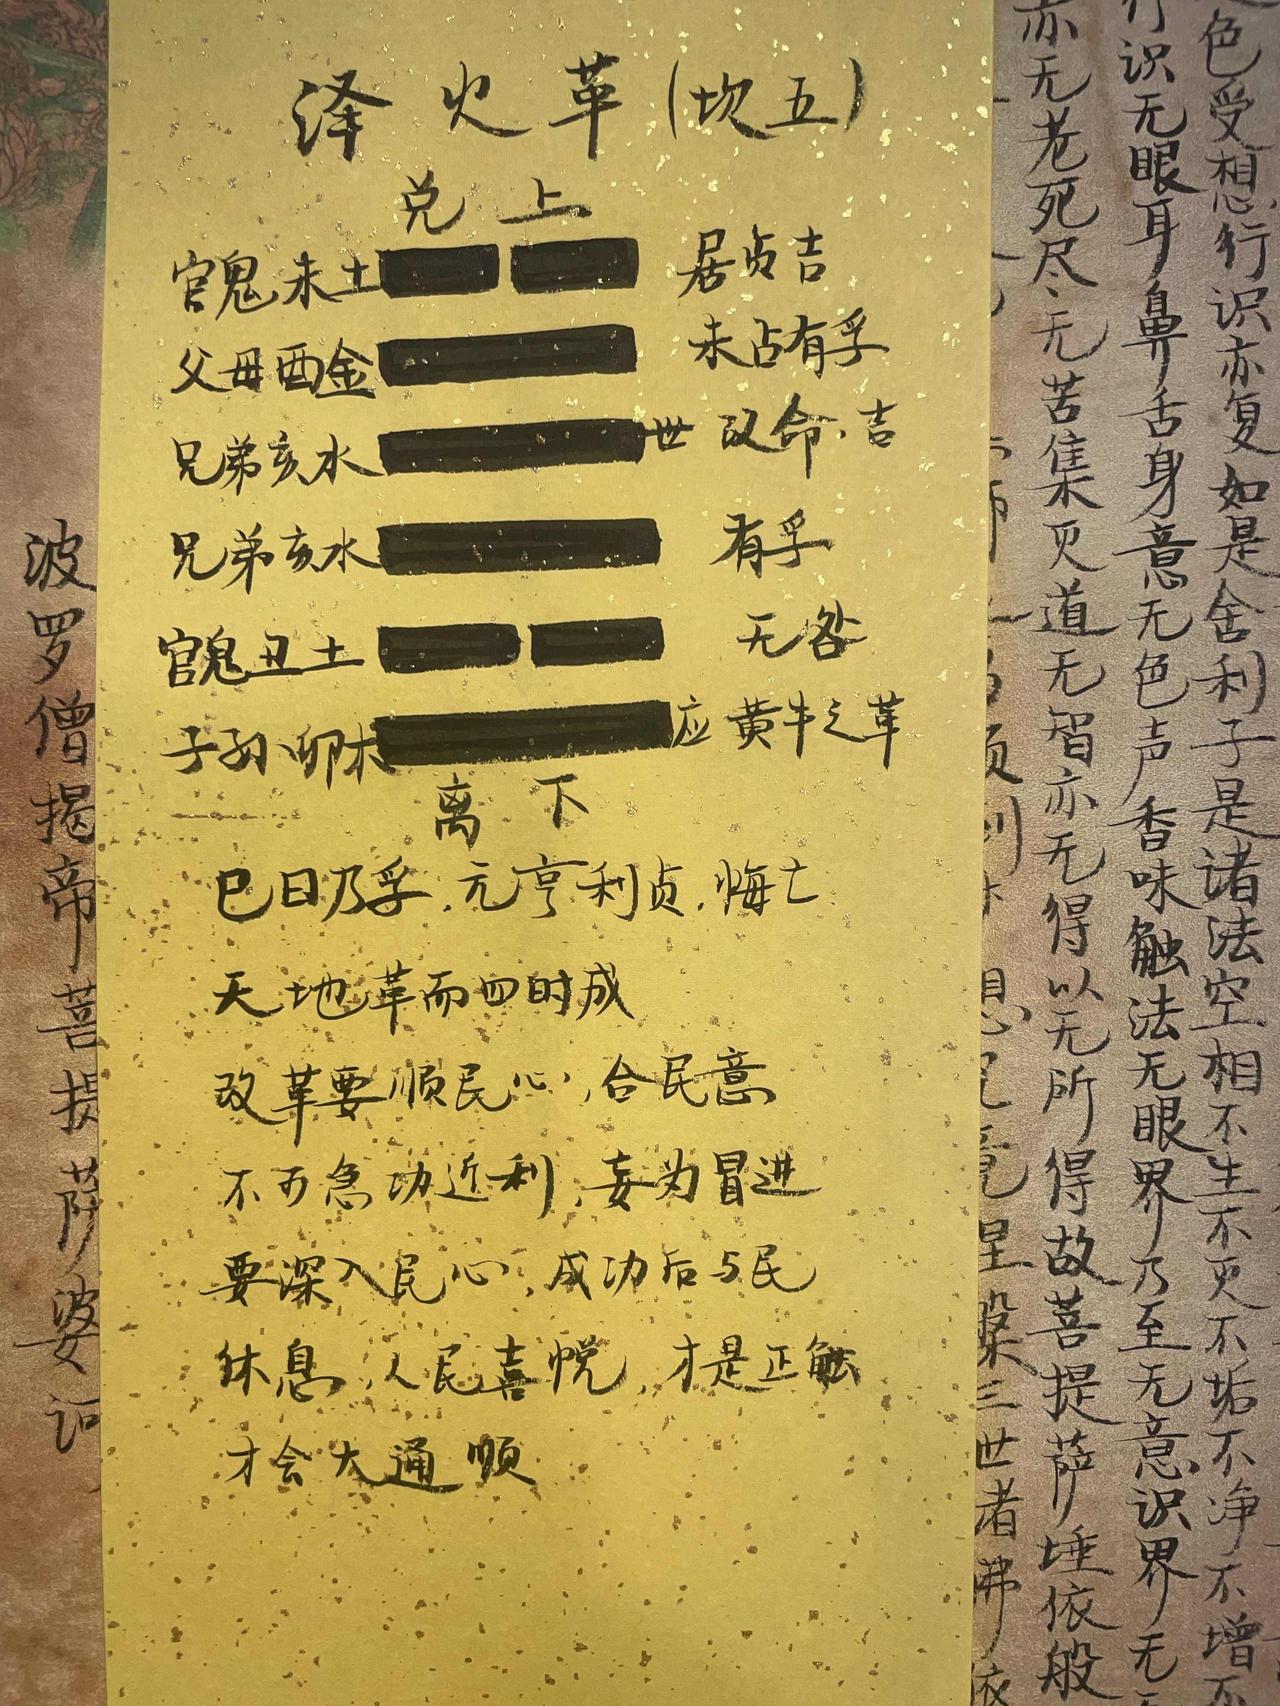 泽火革(坎五)
兑上
官鬼未土 居贞吉
父母酉金 未占有孚
兄弟亥水 世 改命.吉
兄弟亥水 有孚
官鬼丑土 无咎
子孙卯木 应 黄牛之革
离下
巳日乃孚.元亨利贞.悔亡
天地革而四时成
改革要顺民心,合民意
不可急功近利,妄为冒进
要深入民心,成功后与民
休息,人民喜悦,才是正触
才会大通顺
色受想行识亦复如是舍利子是诸法空相不生不灭不垢不净不增不
行识无眼耳鼻舌身意无色声香味触法无眼界乃至无意识界无
亦无老死尽无苦集灭道无智亦无得以无所得故菩提萨埵依般
三世者佛依
波罗僧揭帝菩提萨婆诃